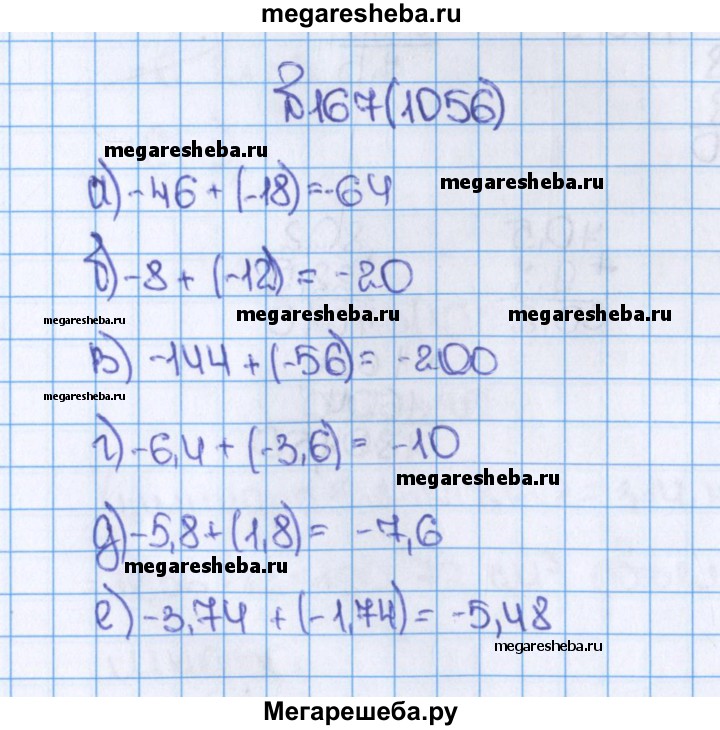 megaresheba.ru
№167(1056)
megaresheba.ru
а) -46 + (-18) = -64
megaresheba.ru
б) -8 + (-12) = -20
megaresheba.ru megaresheba.ru megaresheba.ru
в) -144 + (-56) = -200
megaresheba.ru
г) -6,4 + (-3,6) = -10
megaresheba.ru
д) -5,8 + (1,8) = -7,6
megaresheba.ru
е) -3,74 + (-1,74) = -5,48
megaresheba.ru
Мегарешеба.ру